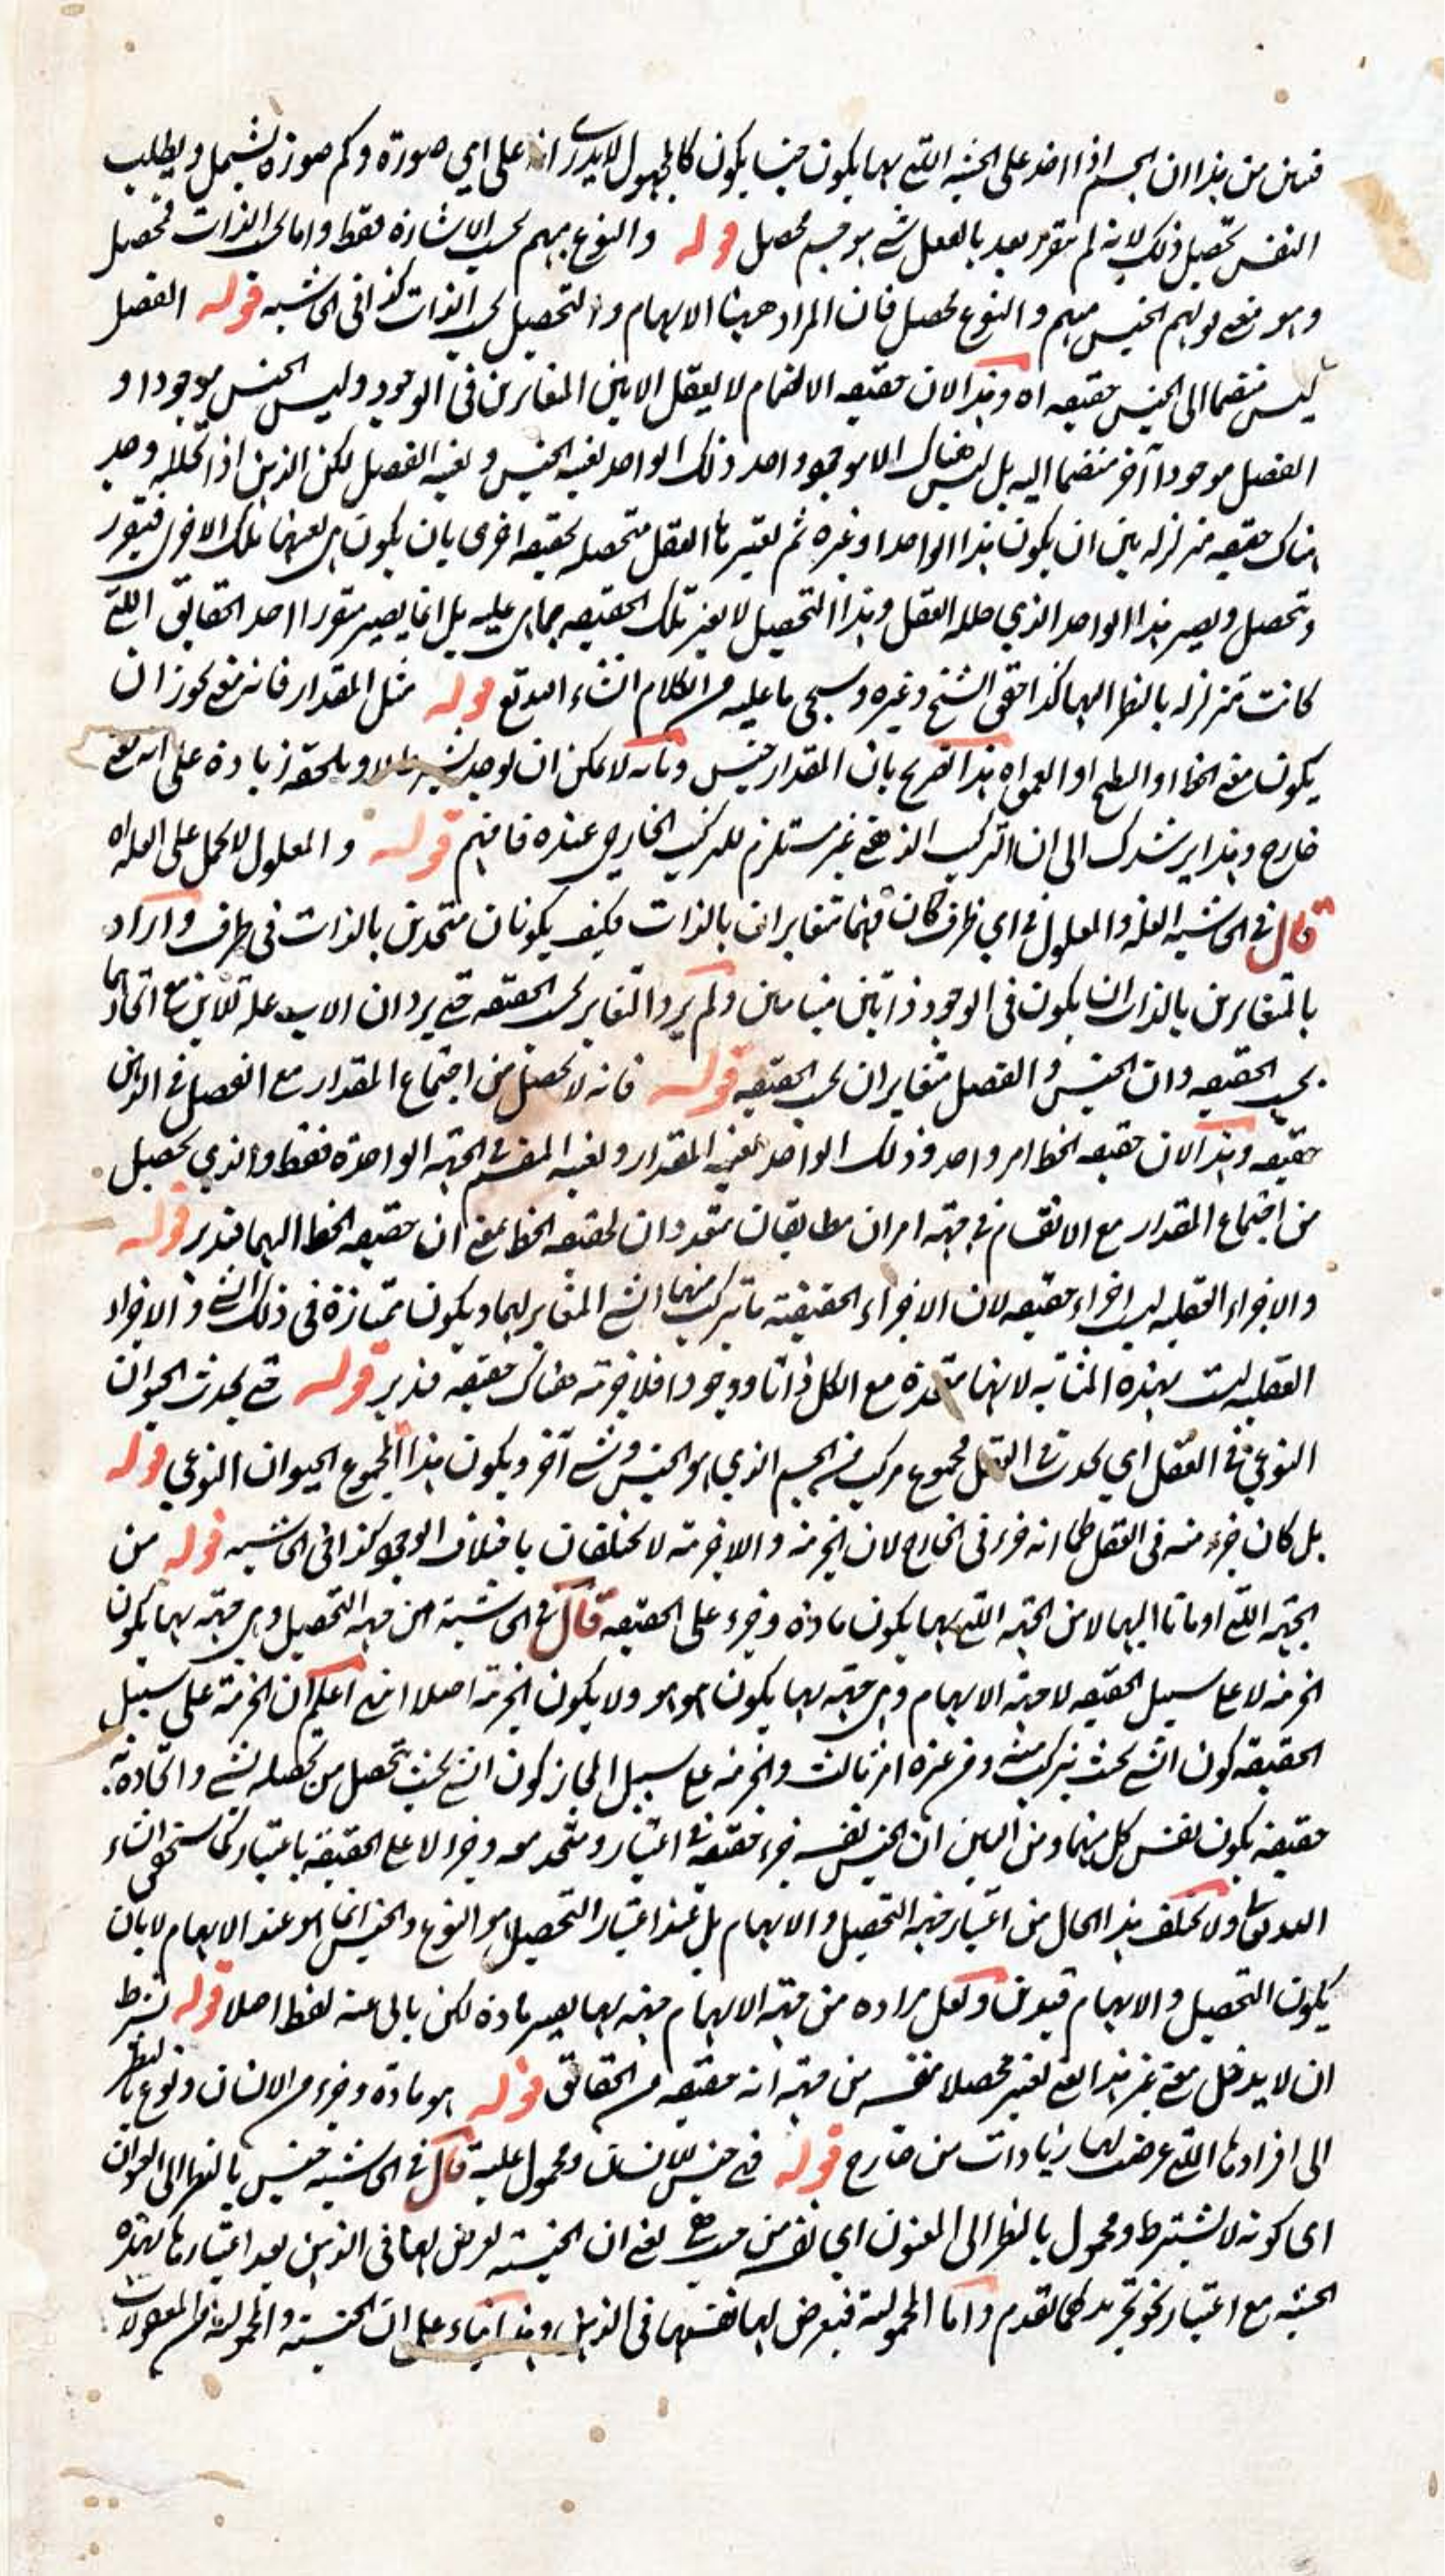 فتبين من هذا ان الجسم اذا اخذ على الجهة التي بها يكون جنسا يكون كالمجهول لا يدرى انه على اي صورة وكم صورة يشتمل ويطلب
النفس تحصيل ذلك لانه لم يتقرر بعد بالفعل شئ هو جسم محصل قوله والنوع مبهم بحسب الاشارة فقط واما بحسب الذات فمحصل
وهو معنى قولهم الجنس مبهم والنوع محصل فان المراد ههنا الابهام والتحصيل بحسب الذات كذا فى الحاشية قوله الفصل
ليس منضما الى الجنس حقيقه اه وهذا لان حقيقه الانضمام لا يعقل الا بين المتغايرين فى الوجود وليس الجنس موجودا و
الفصل موجودا آخر منضما اليه بل ليس هناك الا موجود واحد ذلك الواحد بعينه الجنس وبعينه الفصل لكن الذهن اذا حلله وجد
هناك حقيقه متزلزله بين ان يكون هذا الواحد او غيره ثم يعتبرها العقل متحصله بحقيقه اخرى بان يكون هى بعينها تلك الاخرى فيتقرر
ويتحصل ويصير هذا الواحد الذي حلله العقل وهذا التحصيل لا يغير تلك الحقيقه عما هى عليه بل انما يصير متقررا احد الحقايق التي
كانت متزلزله بالنظر اليها كذا حقق الشيخ وغيره وسيجى ما عليه من الكلام انشاء الله تع قوله مثل المقدار فانه معنى يجوز ان
يكون معنى الخط او السطح او العمق اه هذا تصريح بان المقدار جنس وبانه لا يمكن ان يوجد بشرط لا ويلحقه زيادة على انه معنى
خارج وهذا يرشدك الى ان التركيب الذهني غير مستلزم للتركيب الخارجى عنده فافهم قوله والمعلول لا يحمل على العله اه
قال فى الحاشيه العله والمعلول في اي ظرف كان فهما متغايران بالذات فكيف يكونان متحدين بالذات فى ظرف واراد
بالمتغايرين بالذات ان يكون فى الوجود ذاتين متباينين ولم يرد التغاير بحسب الحقيقه حتى يرد ان الاب عله للابن مع اتحادهما
بحسب الحقيقه وان الجنس والفصل متغايران بحسب الحقيقه قوله فانه لا يحصل من اجتماع المقدار مع الفصل في الذهن
حقيقه وهذا لان حقيقه الخط امر واحد وذلك الواحد بعينه المقدار وبعينه المنقسم في الجهة الواحدة فقط والذي يحصل
من اجتماع المقدار مع الانقسام في جهة امران مطابقان متعددان لحقيقه الخط بمعنى ان حقيقه الخط اليهما فتدبر قوله
والاجزاء العقليه ليست اجزاء حقيقه لان الاجزاء الحقيقيه ما يتركب منهما الشئ المغاير لهما ويكون ممتازة فى ذلك الشئ والاجزاء
العقليه ليست بهذه المثابه لانها متحدة مع الكل ذاتا ووجودا فلا جزئية هناك حقيقه فتدبر قوله حتى يحدث الحيوان
النوعي في العقل اي يحدث في العقل مجموع مركب من الجسم الذي هو الجنس وشئ آخر ويكون هذا المجموع الحيوان النوعي قوله
بل كان جزء منه فى العقل كما انه جزء فى الخارج لان الجزئية واللاجزئية لا تختلفان باختلاف الوجود كذا فى الحاشيه قوله من
الجهة التي اومانا اليها لا من الجهة التي بها يكون مادة وجزء على الحقيقه قال في الحاشية من جهة التحصيل وهى جهة بها يكون
الجزئية لا على سبيل الحقيقه لا جهة الابهام وهى جهة بها يكون هو هو ولا يكون الجزئية اصلا انتهى اعلم ان الجزئية على سبيل
الحقيقه كون الشئ بحيث يتركب منه ومن غيره امر ثالث والجزئية على سبيل المجاز كون الشئ بحيث يحصل من تحصله بشئ واتحاده به
حقيقه يكون نفس كل منهما ومن البين ان الجنس نفسه جزء حقيقه في اعتبار ومتحد معه وجزء لا على الحقيقه باعتبار كما ستحقق انشاء
الله تعالى ولا يختلف هذا الحال من اعتبار جهة التحصيل والابهام بل عند اعتبار التحصيل هو النوع والجنس انما هو عند الابهام لا بان
يكون التحصيل والابهام قيدين ولعل مراده من جهة الابهام جهة بها يصير مادة لكن يابى عنه لفظ اصلا قوله بشرط
ان لا يدخل معنى غير هذا المعنى يعتبر محصلا بنفسه من جهة انه حقيقه من الحقائق قوله هو مادة وجزء من الانسان ونوع بالنظر
الى افرادها التي عرضت لها زيادات من خارج قوله فهي جنس للانسان ومحمول عليه قال في الحاشيه جنس بالنظر الى العنوان
اى كونه لا بشرط ومحمول بالنظر الى المعنون اي نفسه من حيث هى يعنى ان الجنسيه تعرض لها فى الذهن بعد اعتبارها بهذه
الحيثيه مع اعتبار نحو تجريد كما تقدم واما المحمولية فتعرض لها نفسها فى الذهن وهذا بناء على ان الجنسيه والمحموليه من المعقولات